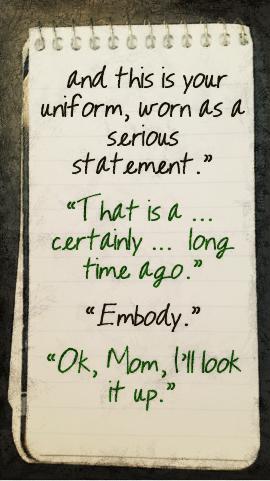 and this is your
uniform, worn as a
serious
statement.”
“That is a ...
certainly ... long
time ago.”
“Embody.”
“Ok, Mom, I’ll look
it up.”